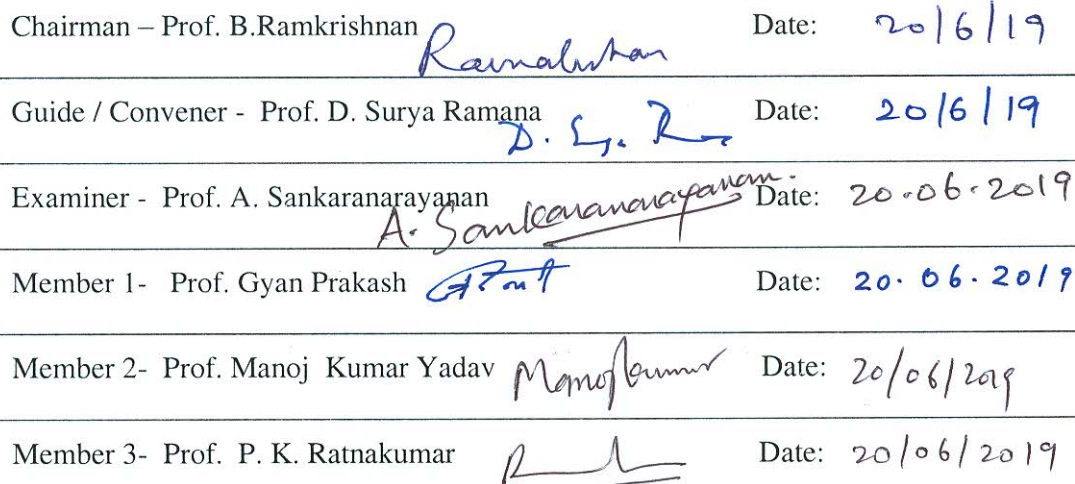 Chairman – Prof. B.Ramkrishnan Date: 20/6/19
Guide / Convener - Prof. D. Surya Ramana D. Date: 20/6/19
Examiner - Prof. A. Sankaranarayanan A. Sankaranarayanan. Date: 20.06.2019
Member 1- Prof. Gyan Prakash Date: 20.06.2019
Member 2- Prof. Manoj Kumar Yadav Manojkumar Date: 20/06/2019
Member 3- Prof. P. K. Ratnakumar Date: 20/06/2019